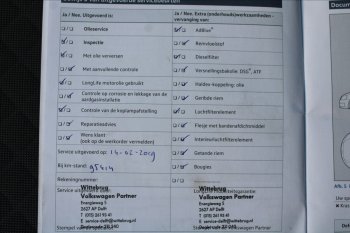 Ja / Nee. Uitgevoerd is:
Olieservice
Inspectie
Met olie verversen
Met aanvullende controle
LongLife motorolie gebruikt
Controle op corrosie en lekkage van de
aardgasinstallatie
Controle van de koplampafstelling
Reparatieadvies
Wens klant
(ook op de werkorder vermelden)
Service uitgevoerd op: 14-02-2019
Bij km-stand:
Rekeningnummer:
Wittebrug
Volkswagen Partner
Energieweg 5
2627 AP Delft
T (015) 261 93 41
E service-delft@wittebrug.nl
Ja / Nee. Extra (onderhouds)werkzaamheden -
vervanging van:
AdBlue®
Remvloeistof
Dieselfilter
Versnellingsbakolie: DSG®, ATF
Haldex-koppeling: olie
Geribde riem
Luchtfilterelement
Flesje met bandenafdichtmiddel
Interieurluchtfilterelement
Getande riem
Bougies
Wittebrug
Volkswagen Partner
Energieweg 5
2627 AP Delft
T (015) 261 93 41
E service-delft@wittebrug.nl